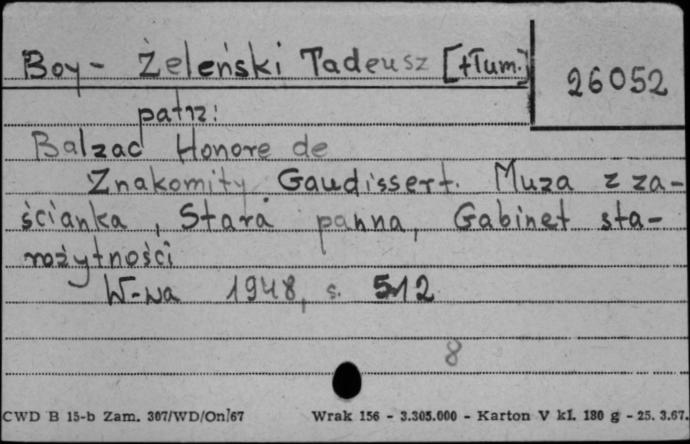 Boy- Żeleński Tadeusz [tłum.]
26052
patrz:
Balzac Honore de
Znakomity Gaudissert. Muza z za-
ścianka, Stara panna, Gabinet sta-
rożytności
W-wa 1948, s. 512
8
CWD B 15-b Zam. 307/WD/On/67 Wrak 156 - 3.305.000 - Karton V kl. 180 g - 25. 3.67.